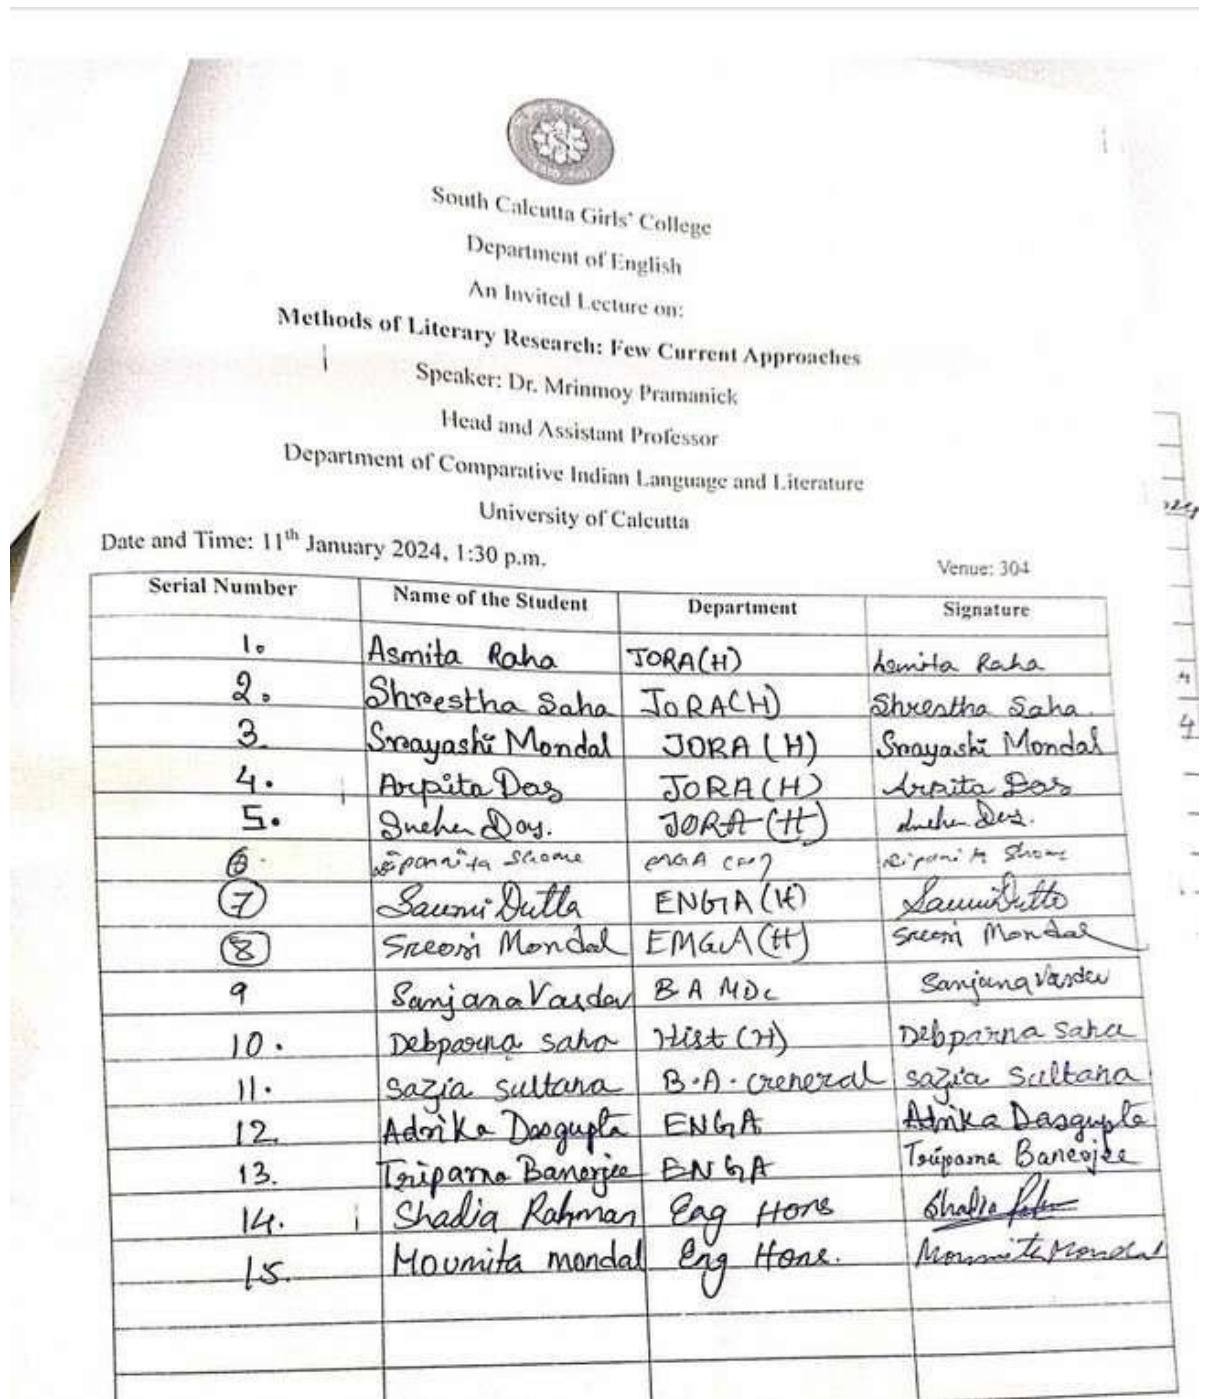 South Calcutta Girls' College
Department of English
An Invited Lecture on:
Methods of Literary Research: Few Current Approaches
Speaker: Dr. Mrinmoy Pramanick
Head and Assistant Professor
Department of Comparative Indian Language and Literature
University of Calcutta
Date and Time: 11th January 2024, 1:30 p.m.
Venue: 304
Serial Number Name of the Student Department Signature
1. Asmita Raha JORA(H) Asmita Raha
2. Shreestha Saha JORA(H) Shrestha Saha.
3. Sreayashi Mondal JORA (H) Sreayashi Mondal
4. Arpita Das JORA(H) Arpita Das
5. JORA (H)
6. Shome Shome
7 Saumi Dutta ENGA(H) Saumi Dutta
8 Mondal EMGA(H) Mondal
9 Sanjana Vasdev B A MDC Sanjana Vasdev
10. Debparna saha Hist (H) Debparna saha
11. sazia sultana B.A. General sazia sultana
12. Adrika Dasgupta ENGA Adrika Dasgupta
13. Triparna Banerjee ENGA Triparna Banerjee
14. Shadia Rahman Eng Hons Shadia
15. Moumita mondal Eng Hons. Moumita Mondal